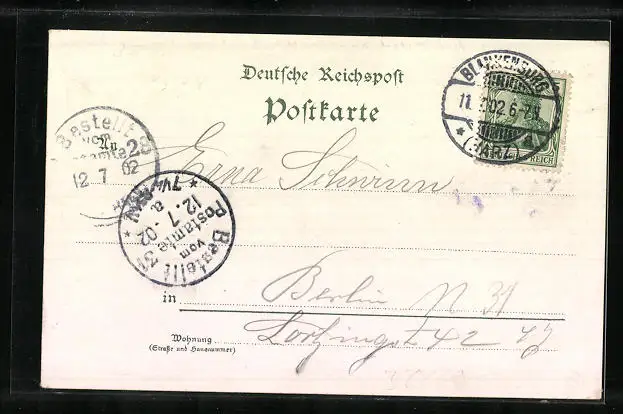 Deutsche Reichspost
Postkarte
BLANKENBURG
11. 02. 6-7N
* (HARZ)
REICH
Bestellt
vom
Postamte 28
12 7 02
An
Erna
Bestellt
vom
Postamte
12. 7. 02
7¼
in Berlin N 31
Wohnung
(Straße und Hausnummer)
Lortzingst 42